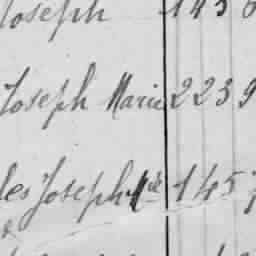 Joseph 143
Joseph Marie 2239
les Joseph Mie 1457